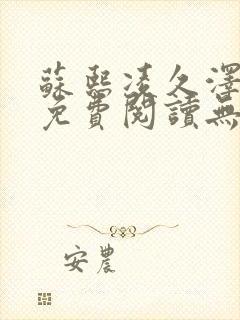 蘇熙凌久澤
免費閱讀無
安農